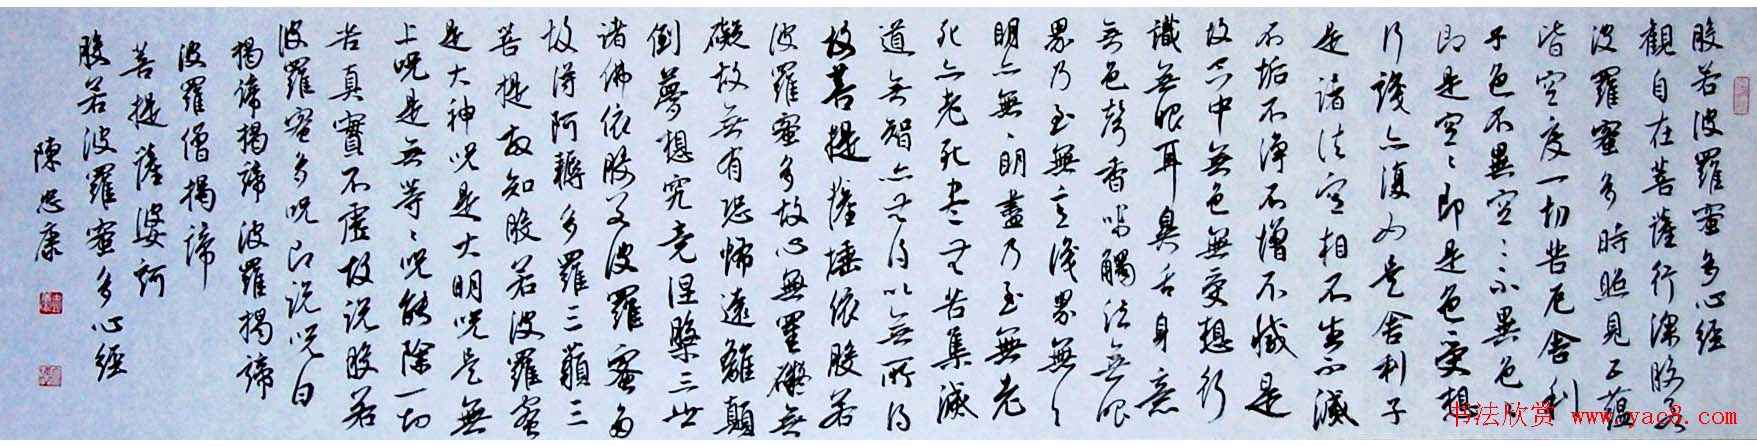 般若波羅蜜多心經
觀自在菩薩行深般若
波羅蜜多時照見五蘊
皆空度一切苦厄舍利
子色不異空〻不異色〻
即是空〻即是色受想
行識亦復如是舍利子
是諸法空相不生不滅
不垢不淨不增不減是
故空中無色無受想行
識無眼耳鼻舌身意
無色聲香味觸法無眼
界乃至無意識界無〻
明亦無〻明盡乃至無老
死亦老死盡無苦集滅
道無智亦無得以無所得
故菩提薩埵依般若
波羅蜜多故心無罣礙無
礙故無有恐怖遠離顛
倒夢想究竟涅槃三世
諸佛依般若波羅蜜多
故得阿耨多羅三藐三
菩提故知般若波羅蜜
是大神咒是大明咒是無
上咒是無等〻咒能除一切
苦真實不虛故說般若
波羅蜜多咒即說咒曰
揭諦揭諦波羅揭諦
波羅僧揭諦
菩提薩婆訶
般若波羅蜜多心經
陳忠康
书法欣赏 www.yac8.com